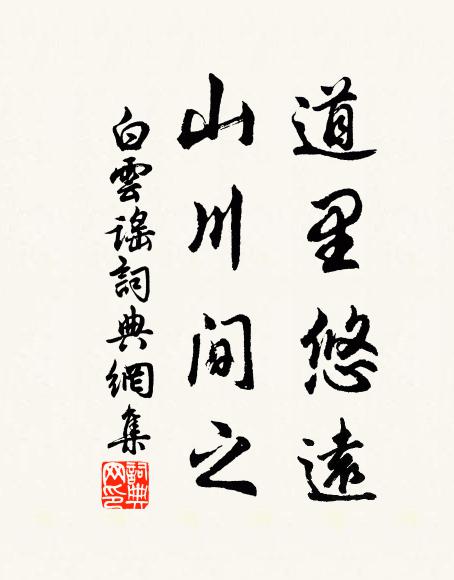 道里悠遠
山川間之
白雲謠詞典網集
詞典網印